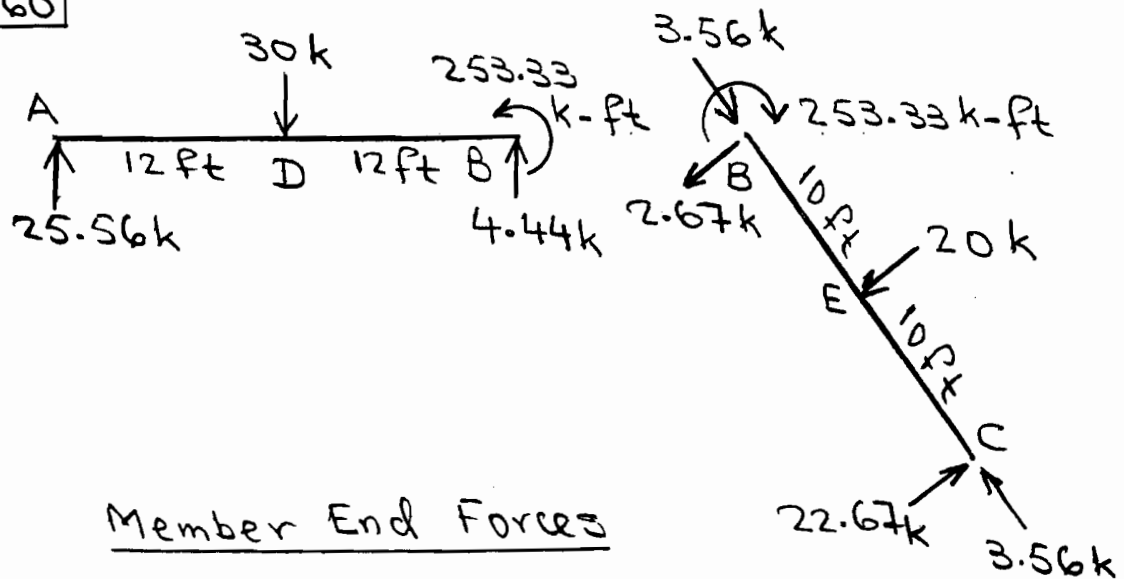 60
30k
253.33
k-ft
A
12ft D 12ft B
25.56k
4.44k
3.56k
253.33k-ft
B
2.67k
10ft
20k
E
10ft
C
22.67k
3.56k
Member End Forces